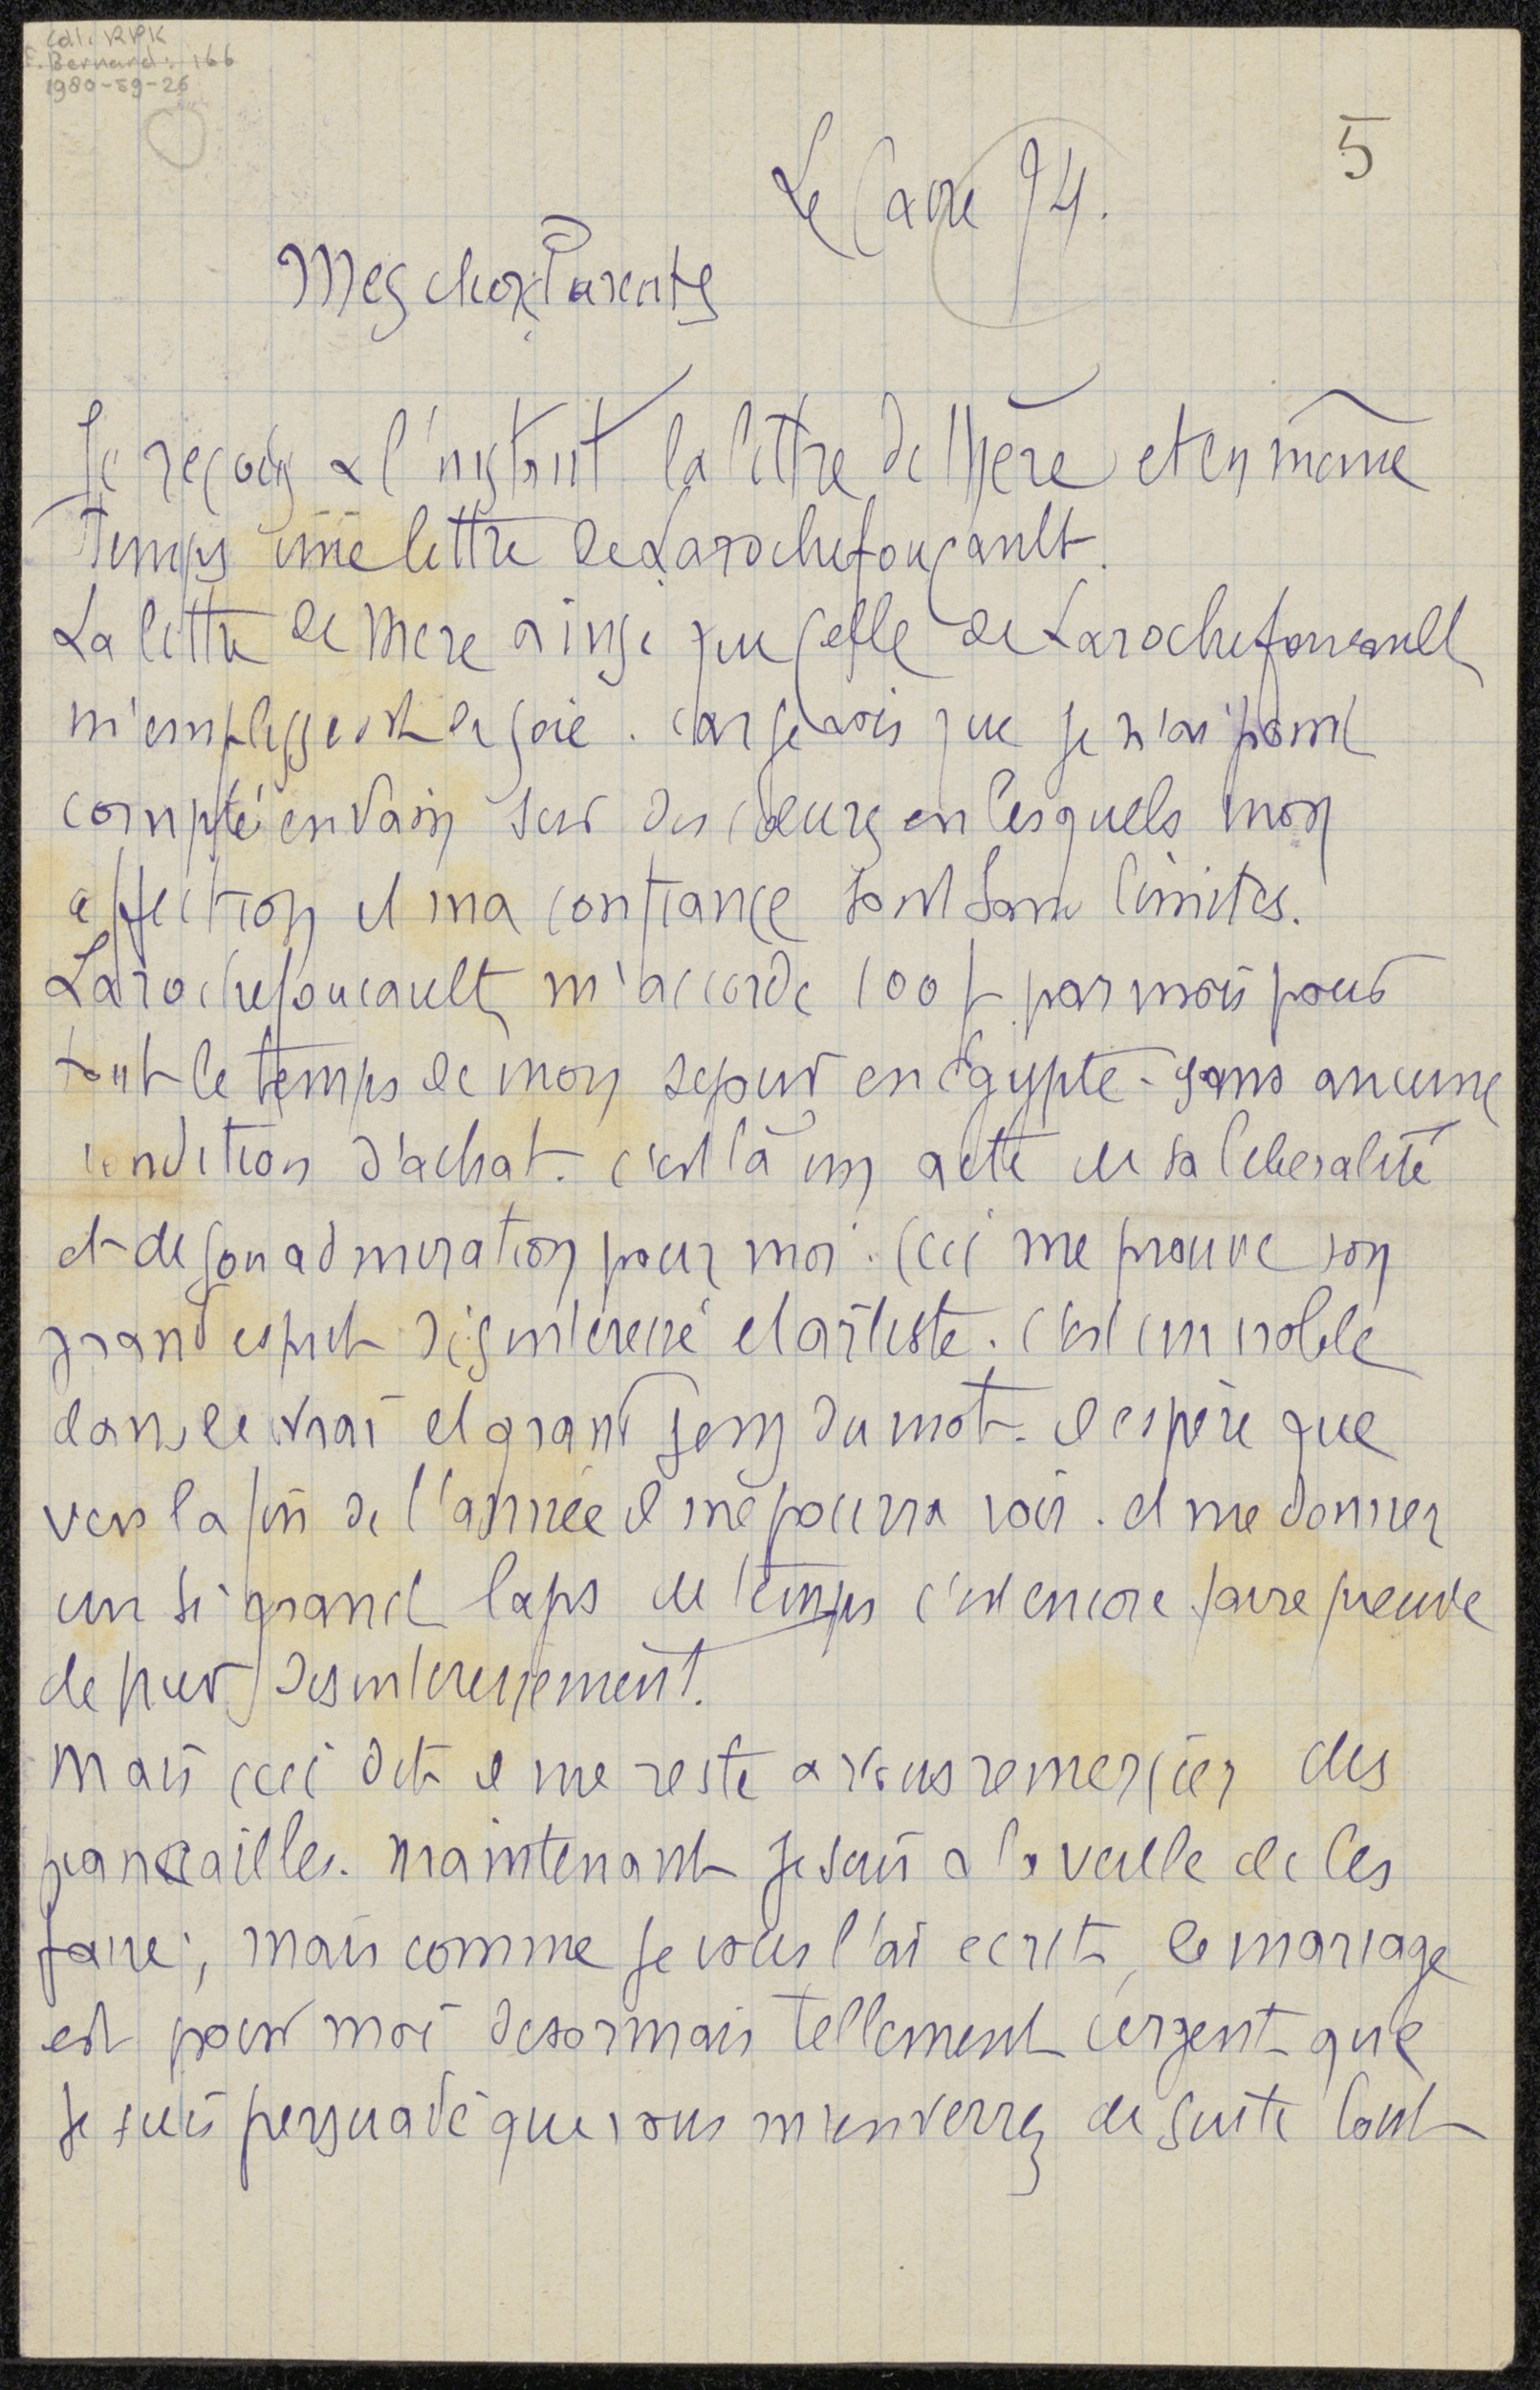 Coll. RPK
E. Bernard: 166
1980-59-26
5
Le Caire 94.
Mes chers Parents
Je reçois a l'instant la lettre de Mère et en même
temps une lettre de Larochefoucault.
La lettre de Mere ainsi que celle de Larochefoucault
m'emplissent de joie. car je vois que je n'ai point
compté en vain sur des cœurs en lesquels mon
affection et ma confiance sont sans limites.
Larochefoucault m'accorde 100 f par mois pour
tout le temps de mon sejour en Egypte - sans aucune
condition d'achat. c'est là un acte de sa liberalité
et de son admiration pour moi. Ceci me prouve son
grand esprit désinteressé et artiste. c'est un noble
dans le vrai et grand sens du mot. il espère que
vers la fin de l'année il me pourra voir. et me donner
un si grand laps de temps c'est encore faire preuve
de pur desinteressement.
Mais ceci dit il me reste a vous remercier des
fiancailles. maintenant je suis a la veille de les
faire; mais comme je vous l'ai ecrit, le mariage
est pour moi desormais tellement urgent que
je suis persuadé que vous m'enverrez de suite tout